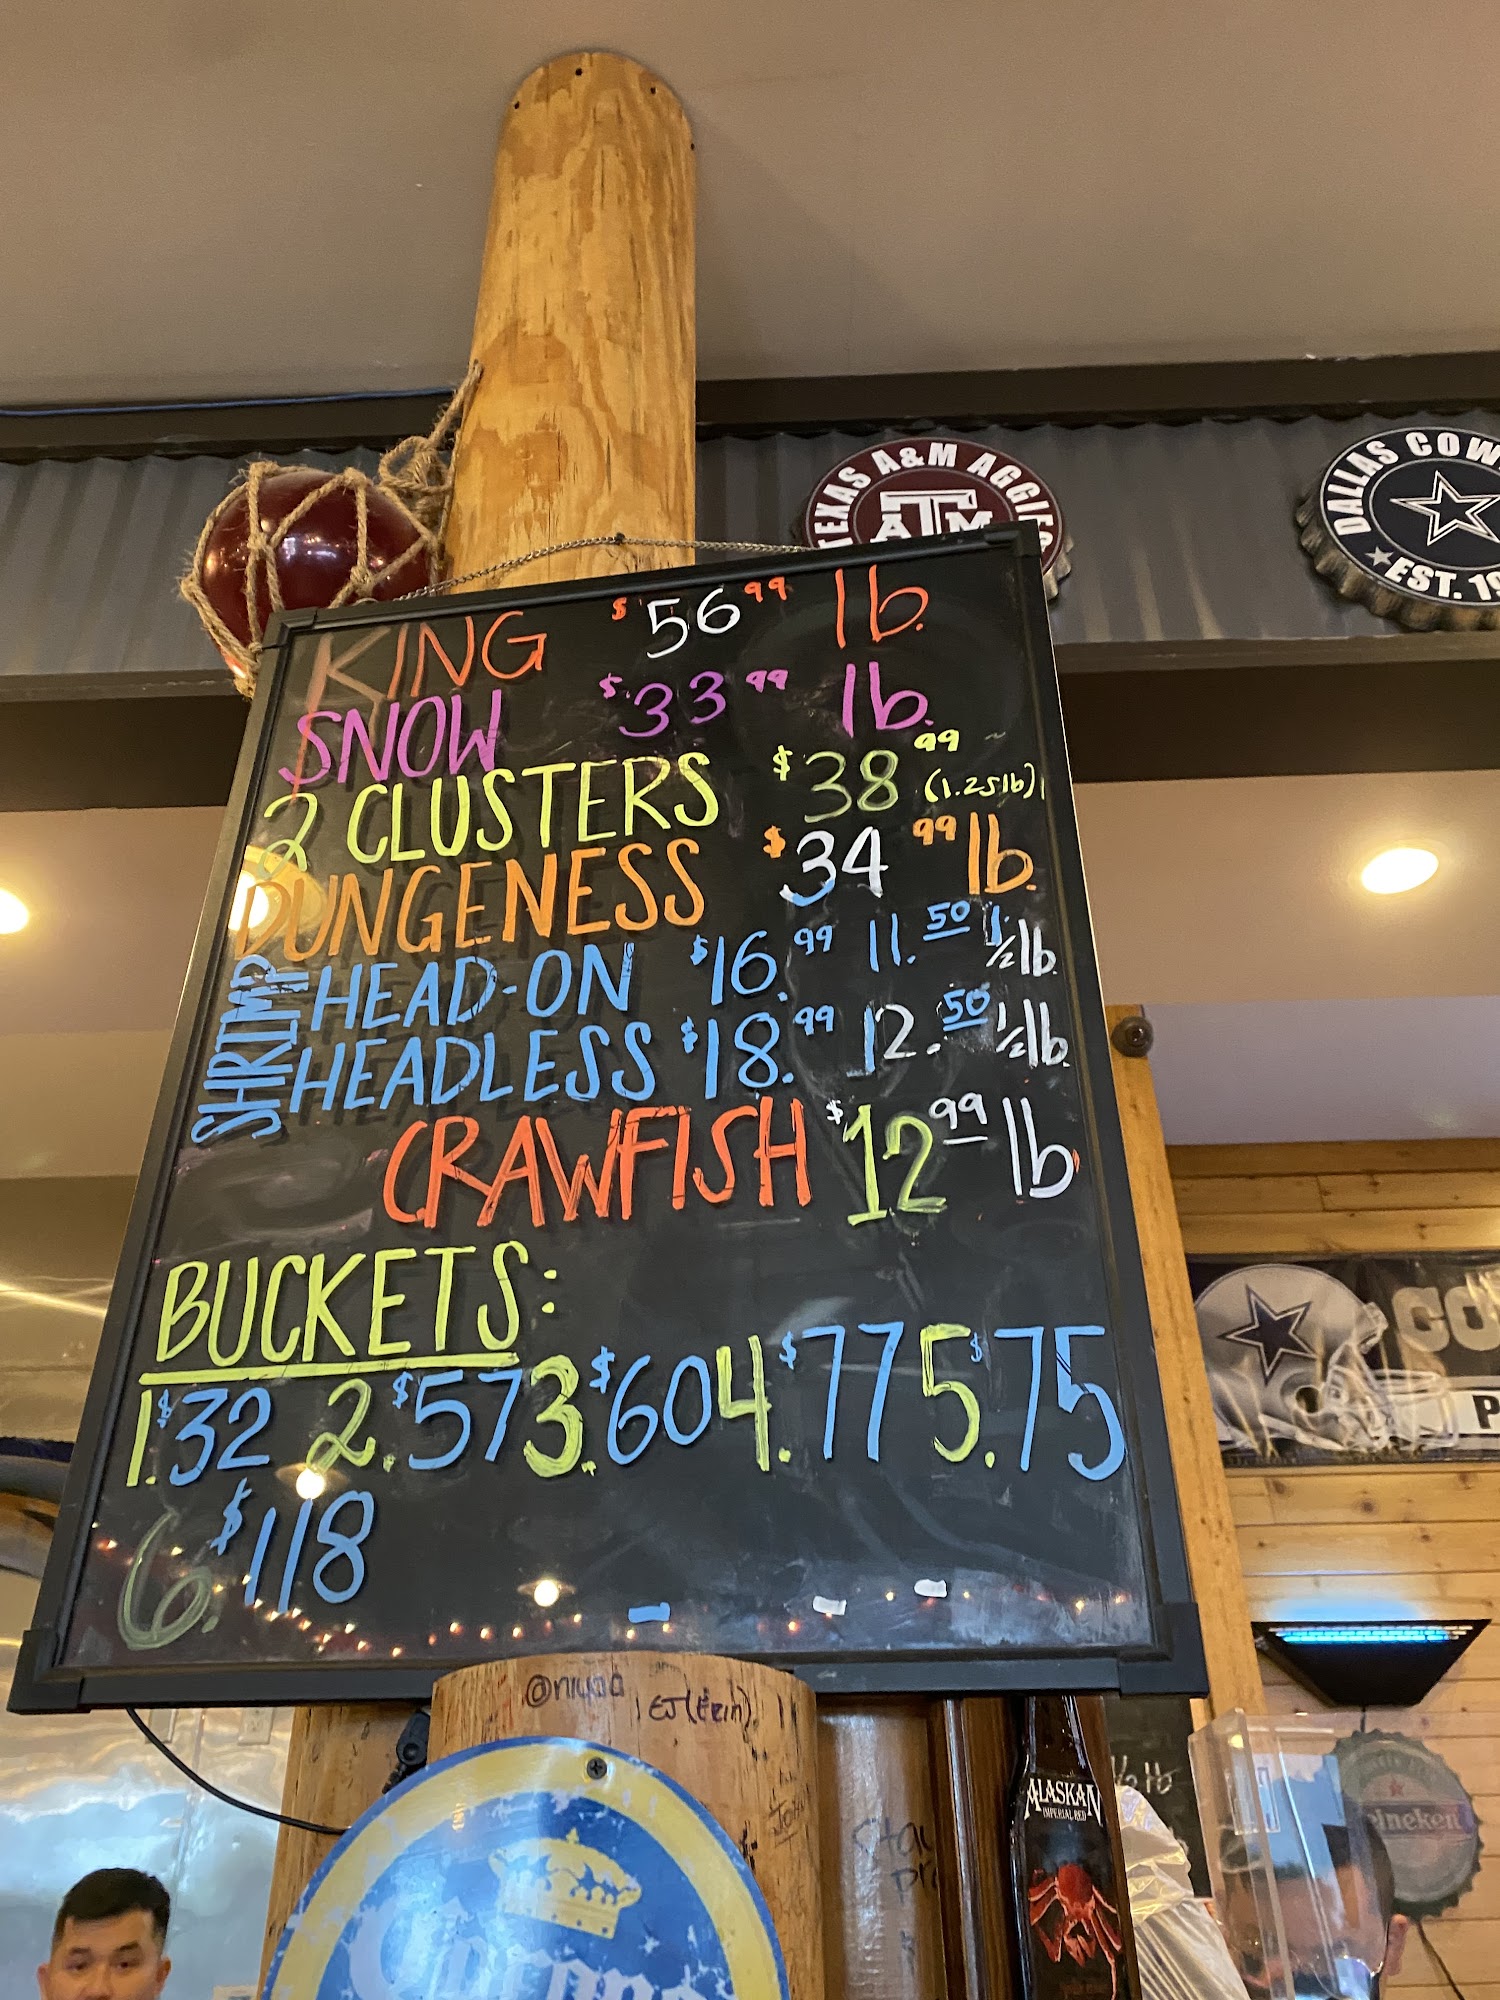 TEXAS A&M AGGIES
ATM
DALLAS COW
EST. 19
KING $56.99 lb.
SNOW $33.99 lb.
2 CLUSTERS $38.99 (1.25lb)
DUNGENESS $34.99 lb.
SHRIMP
HEAD-ON $16.99 11.50 1/2 lb.
HEADLESS $18.99 12.50 1/2 lb.
CRAWFISH $12.99 lb
BUCKETS:
1. $32 2. $57 3. $60 4. $77 5. $75
6. $118
CO
P
EJ (Erin)
ALASKAN
IMPERIAL RED
Corona
eineken